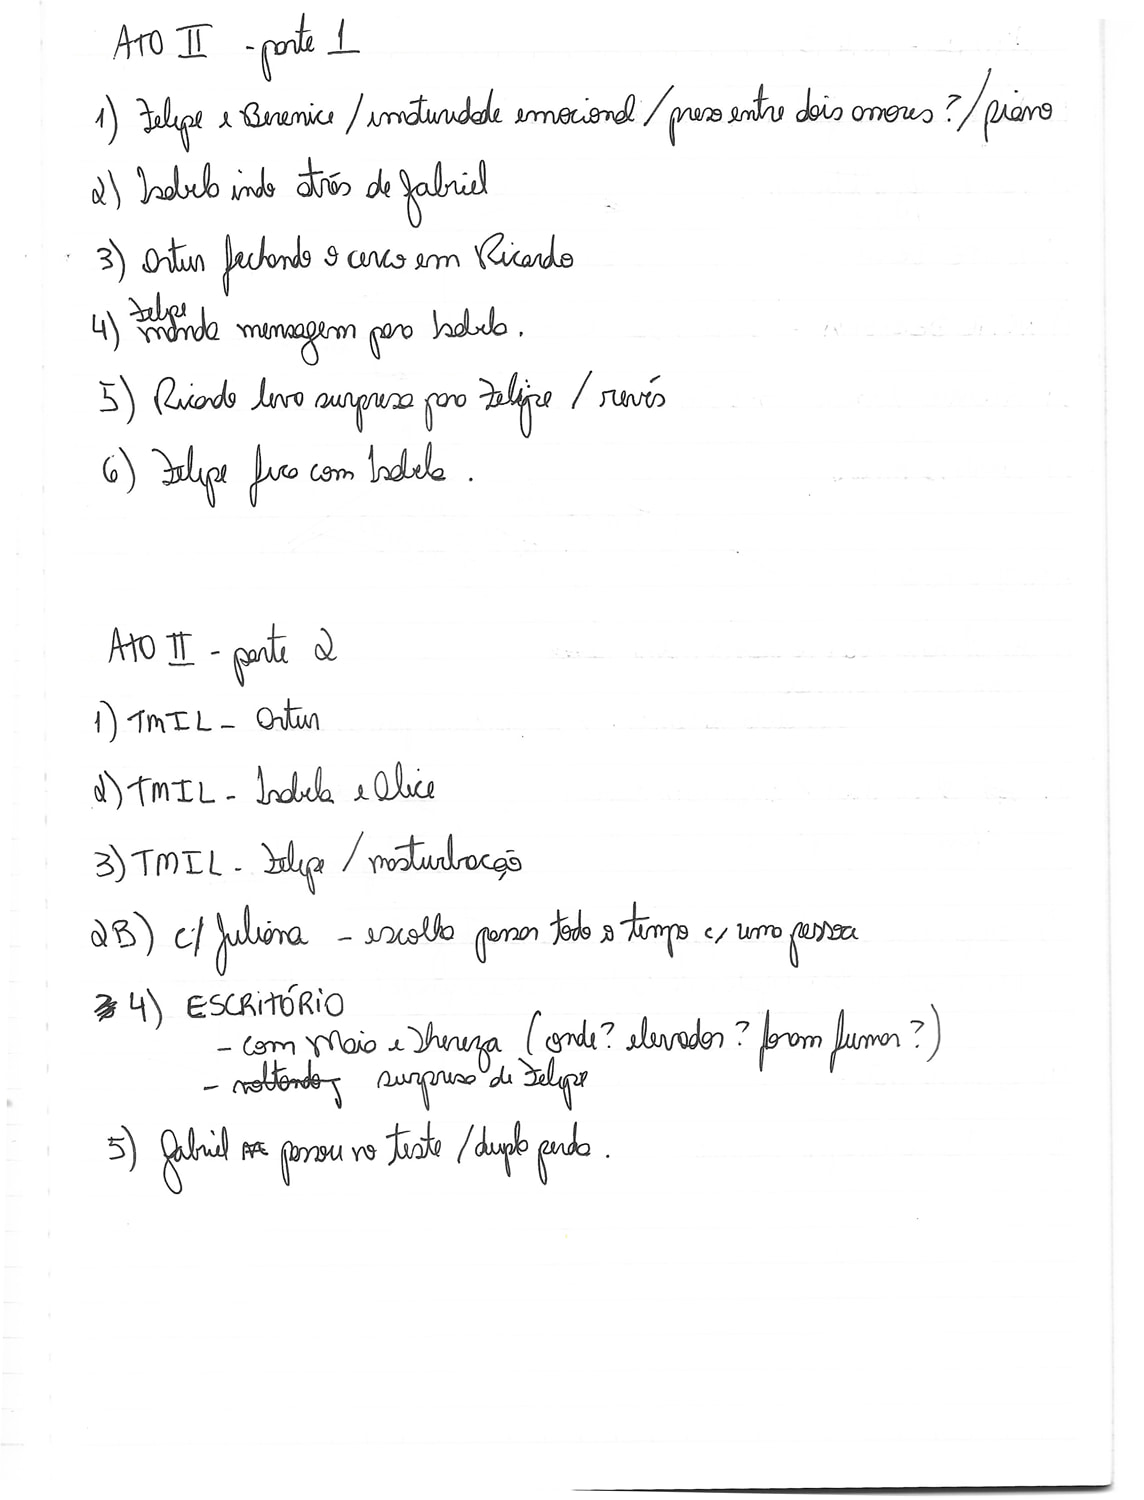 ATO II - parte 1
1) Felipe e Berenice / imaturidade emocional / preso entre dois amores? / piano
2) Isabela indo atrás de Gabriel
3) Artur fechando o cerco em Ricardo
4) Felipe manda mensagem para Isabela.
5) Ricardo leva surpresa para Felipe / revés
6) Felipe fica com Isabela.
ATO II - parte 2
1) TMIL - Artur
2) TMIL - Isabela e Alice
3) TMIL - Felipe / masturbação
2B) c/ Juliana - escolha passar todo o tempo c/ uma pessoa
4) ESCRITÓRIO
- com Maio e Thereza (onde? elevador? foram fumar?)
- voltando surpresa de Felipe
5) Gabriel passou no teste / dupla perda.